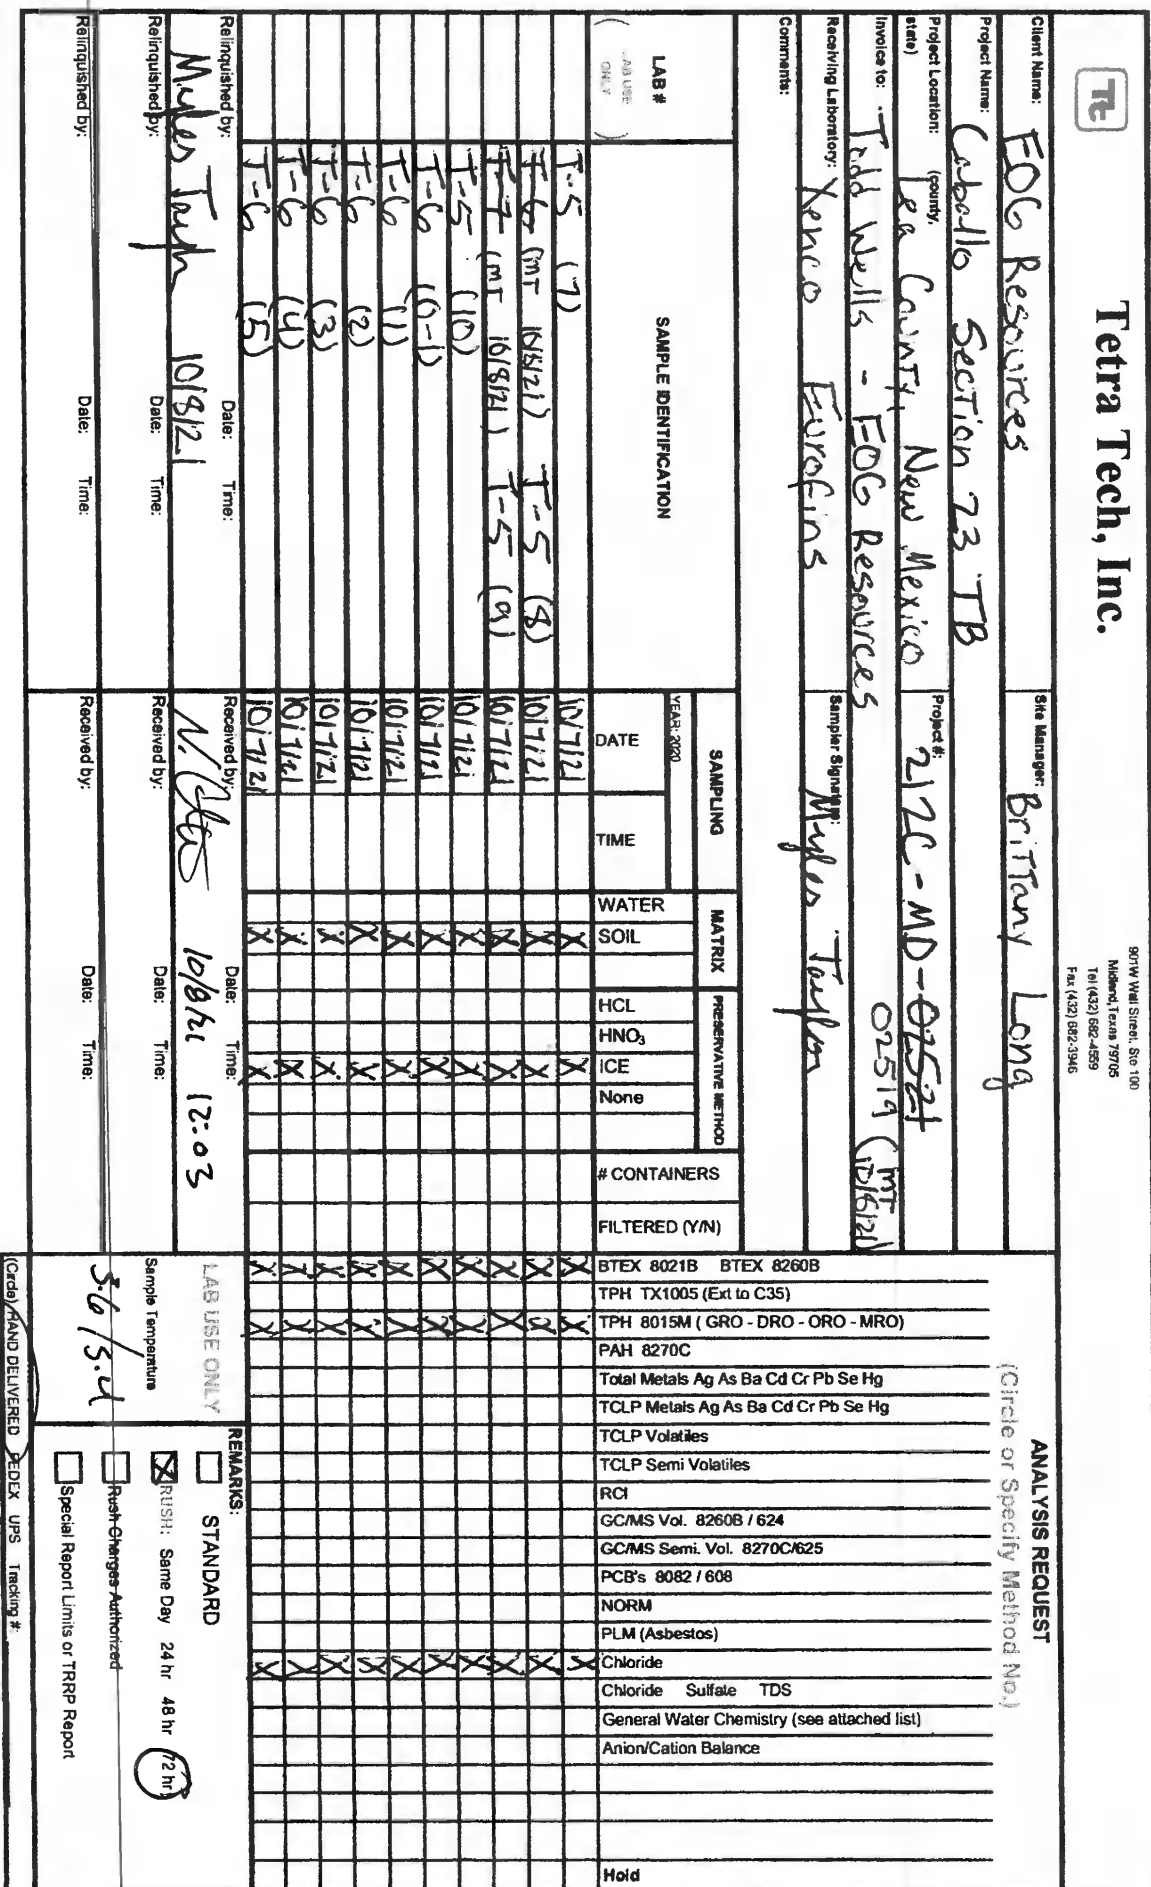 Tt
Tetra Tech, Inc.
901W Wall Street, Ste 100
Midland, Texas 79705
Tel (432) 682-4559
Fax (432) 682-3946
Client Name: EOG Resources
Site Manager: Brittany Long
Project Name: Caballo Section 23 TB
Project Location: (county, state) Lea County, New Mexico
Project #: 212C-MD-02521
02519 (MT 10/6/21)
Invoice to: Todd Wells - EOG Resources
Receiving Laboratory: Xenco Eurofins
Sampler Signature: Myles Taylor
Comments:
ANALYSIS REQUEST
(Circle or Specify Method No.)
LAB #
(LAB USE ONLY)
SAMPLE IDENTIFICATION
SAMPLING
YEAR: 2020
DATE
TIME
MATRIX
WATER
SOIL
PRESERVATIVE METHOD
HCL
HNO3
ICE
None
# CONTAINERS
FILTERED (Y/N)
BTEX 8021B BTEX 8260B
TPH TX1005 (Ext to C35)
TPH 8015M ( GRO - DRO - ORO - MRO)
PAH 8270C
Total Metals Ag As Ba Cd Cr Pb Se Hg
TCLP Metals Ag As Ba Cd Cr Pb Se Hg
TCLP Volatiles
TCLP Semi Volatiles
RCI
GC/MS Vol. 8260B / 624
GC/MS Semi. Vol. 8270C/625
PCB's 8082 / 608
NORM
PLM (Asbestos)
Chloride
Chloride Sulfate TDS
General Water Chemistry (see attached list)
Anion/Cation Balance
Hold
T-5 (7) 10/7/21 X X X X X
T-6 (MT 10/8/21) T-5 (8) 10/7/21 X X X X X
T-7 (MT 10/8/21) T-5 (9) 10/7/21 X X X X X
T-5 (10) 10/7/21 X X X X X
T-6 (0-1) 10/7/21 X X X X X
T-6 (1) 10/7/21 X X X X X
T-6 (2) 10/7/21 X X X X X
T-6 (3) 10/7/21 X X X X X
T-6 (4) 10/7/21 X X X X X
T-6 (5) 10/7/21 X X X X X
Relinquished by: Date: Time:
Myles Taylor 10/8/21
Received by: Date: Time:
10/8/21 12:03
Relinquished by: Date: Time:
Received by: Date: Time:
Relinquished by: Date: Time:
Received by: Date: Time:
LAB USE ONLY
Sample Temperature
3.6/3.4
REMARKS:
STANDARD
X RUSH: Same Day 24 hr 48 hr 72 hr
Rush Charges Authorized
Special Report Limits or TRRP Report
(Circle) HAND DELIVERED FEDEX UPS Tracking #: